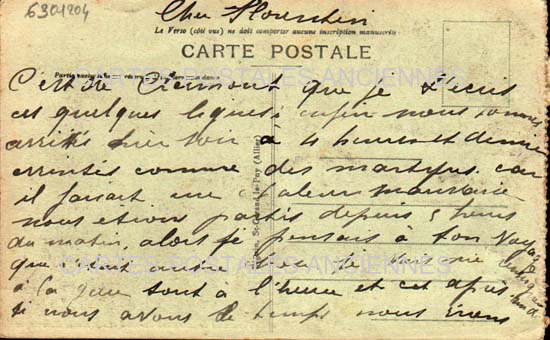 6301204
Cher Florentin
Le Verso (côté vue) ne doit comporter aucune inscription manuscrite
CARTE POSTALE
CARTES POSTALES ANCIENNES
C'est de Clermont que je t'écris
ces quelques lignes enfin nous sommes
arrivés hier soir à 4 heures et demie
éreintés comme des martyrs car
il faisait une chaleur mauvaise
nous étions partis depuis 5 heures
du matin, alors je pensais à ton voyage
que
CARTES POSTALES ANCIENNES
à la gare tout à l'heure et cet après
si nous avons le temps nous irons
St-Gérand-le-Puy (Allier)